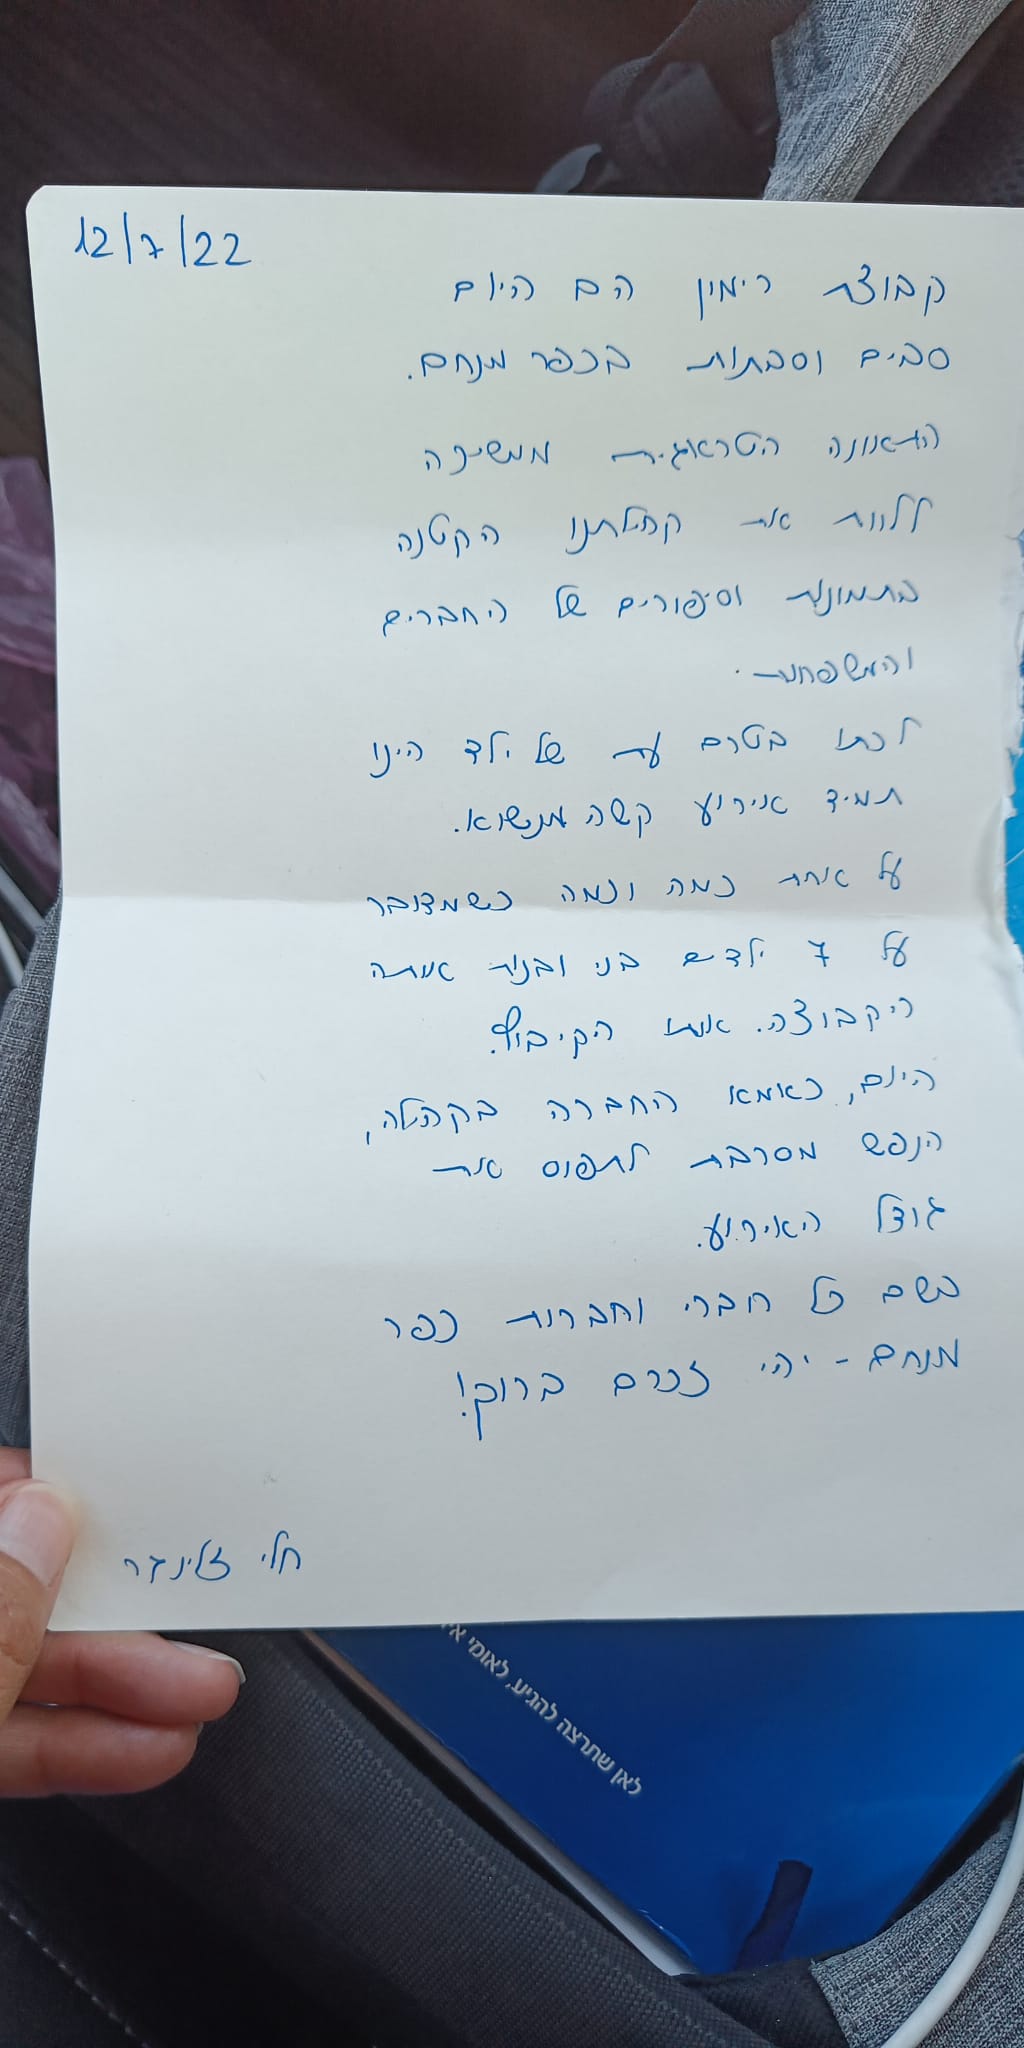 12/7/22
קבוצת רימון הם היום
סבים וסבתות בכפר מנחם.
התאונה הטראגית ממשיכה
ללוות את קהילתנו הקטנה
בתמונות וסיפורים של החברים
והמשפחות.
לכתו בטרם עת של ילד הינו
תמיד אירוע קשה מנשוא.
על אחת כמה וכמה כשמדובר
על 7 ילדים בני ובנות אותה
הקבוצה. אותו הקיבוץ.
היום, כאמא החברה בקהילה,
הנפש מסרבת לתפוס את
גודל האירוע.
בשם כל חברי וחברות כפר
מנחם - יהי זכרם ברוך!
חלי
לאן שתרצה להגיע, לאומי